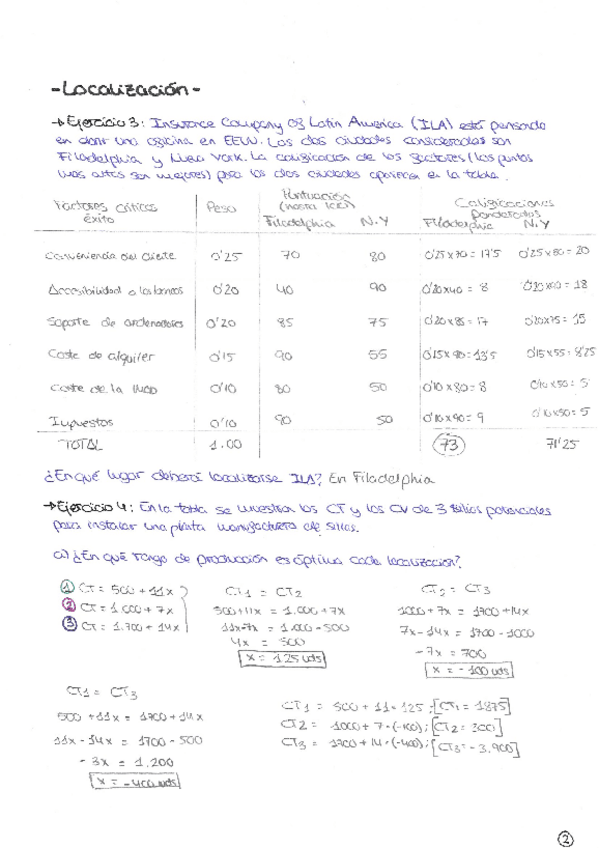 - Localización -
→ Ejercicio 3: Insurance Company of Latin America (ILA) está pensando
en abrir una oficina en EEUU. Las dos ciudades consideradas son
Filadelphia y New York. La calificación de los factores (los puntos
más altos son mejores) para las dos ciudades aparecen en la tabla.
Factores críticos éxito Peso Puntuación (hasta 100) Calificaciones Ponderadas
Filadelphia N.Y Filadelphia N.Y
Conveniencia del cliente 0'25 70 80 0'25x70 = 17'5 0'25x80 = 20
Accesibilidad a los bancos 0'20 40 90 0'20x40 = 8 0'20x90 = 18
Soporte de ordenadores 0'20 85 75 0'20x85 = 17 0'20x75 = 15
Coste de alquiler 0'15 90 55 0'15x90 = 13'5 0'15x55 = 8'25
Coste de la MOD 0'10 80 50 0'10x80 = 8 0'10x50 = 5
Impuestos 0'10 90 50 0'10x90 = 9 0'10x50 = 5
TOTAL 1.00 73 71'25
¿En qué lugar deberá localizarse ILA? En Filadelphia
→ Ejercicio 4: En la tabla se muestran los CT y los CV de 3 sitios potenciales
para instalar una planta manufacturera de sillas.
a) ¿En qué rango de producción es óptima cada localización?
① CT = 500 + 11x
② CT = 1.000 + 7x
③ CT = 1.700 + 14x
CT1 = CT2
500+11x = 1.000+7x
11x-7x = 1.000-500
4x = 500
x = 125 uds
CT2 = CT3
1000+7x = 1700+14x
7x-14x = 1700-1000
-7x = 700
x = -100 uds
CT1 = CT3
500 + 11x = 1700+14x
11x - 14x = 1700-500
-3x = 1.200
x = -400 uds
CT1 = 500 + 11·125; [CT1 = 1875]
CT2 = 1000 + 7·(-100); [CT2 = 300]
CT3 = 1700 + 14·(-400); [CT3 = -3.900]
②